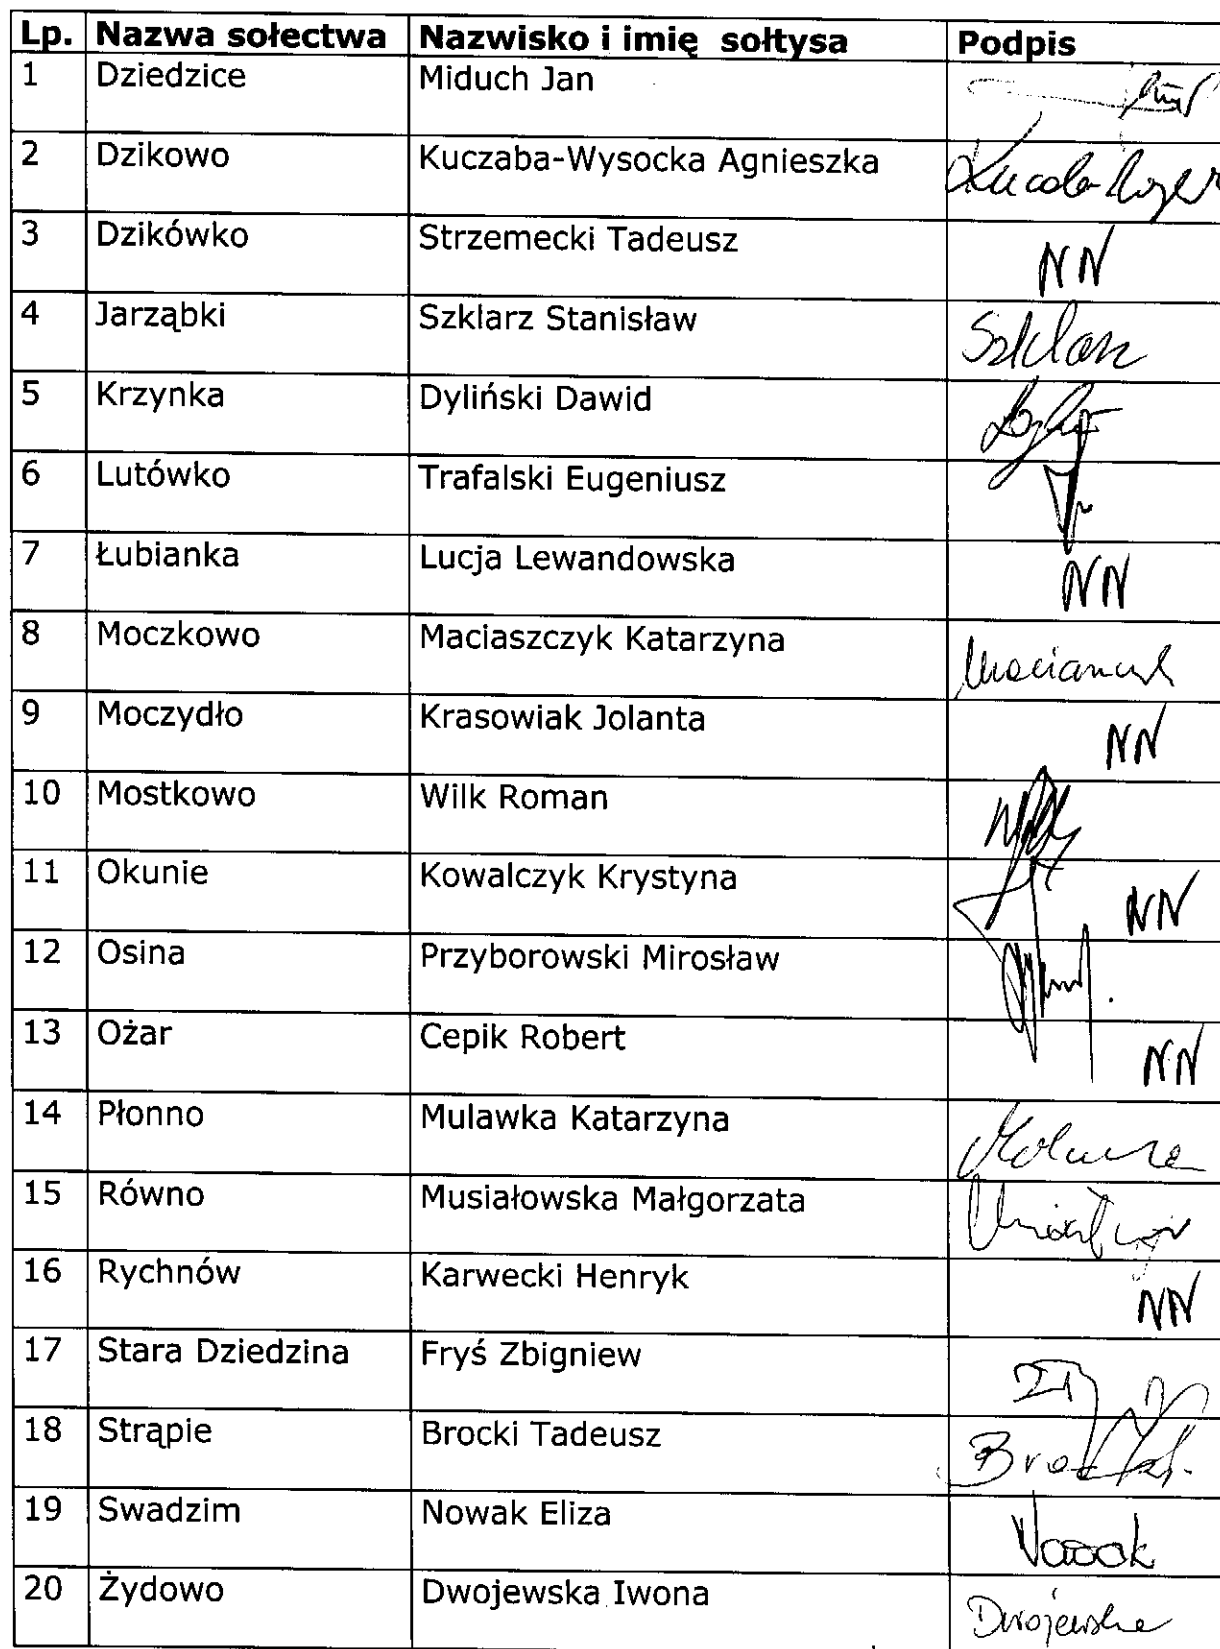 Lp. Nazwa sołectwa Nazwisko i imię sołtysa Podpis
1 Dziedzice Miduch Jan
2 Dzikowo Kuczaba-Wysocka Agnieszka
3 Dzikówko Strzemecki Tadeusz NN
4 Jarząbki Szklarz Stanisław Szklarz
5 Krzynka Dyliński Dawid
6 Lutówko Trafalski Eugeniusz
7 Łubianka Lucja Lewandowska NN
8 Moczkowo Maciaszczyk Katarzyna
9 Moczydło Krasowiak Jolanta NN
10 Mostkowo Wilk Roman
11 Okunie Kowalczyk Krystyna NN
12 Osina Przyborowski Mirosław
13 Ożar Cepik Robert NN
14 Płonno Mulawka Katarzyna
15 Równo Musiałowska Małgorzata
16 Rychnów Karwecki Henryk NN
17 Stara Dziedzina Fryś Zbigniew
18 Strąpie Brocki Tadeusz
19 Swadzim Nowak Eliza Nowak
20 Żydowo Dwojewska Iwona Dwojewska